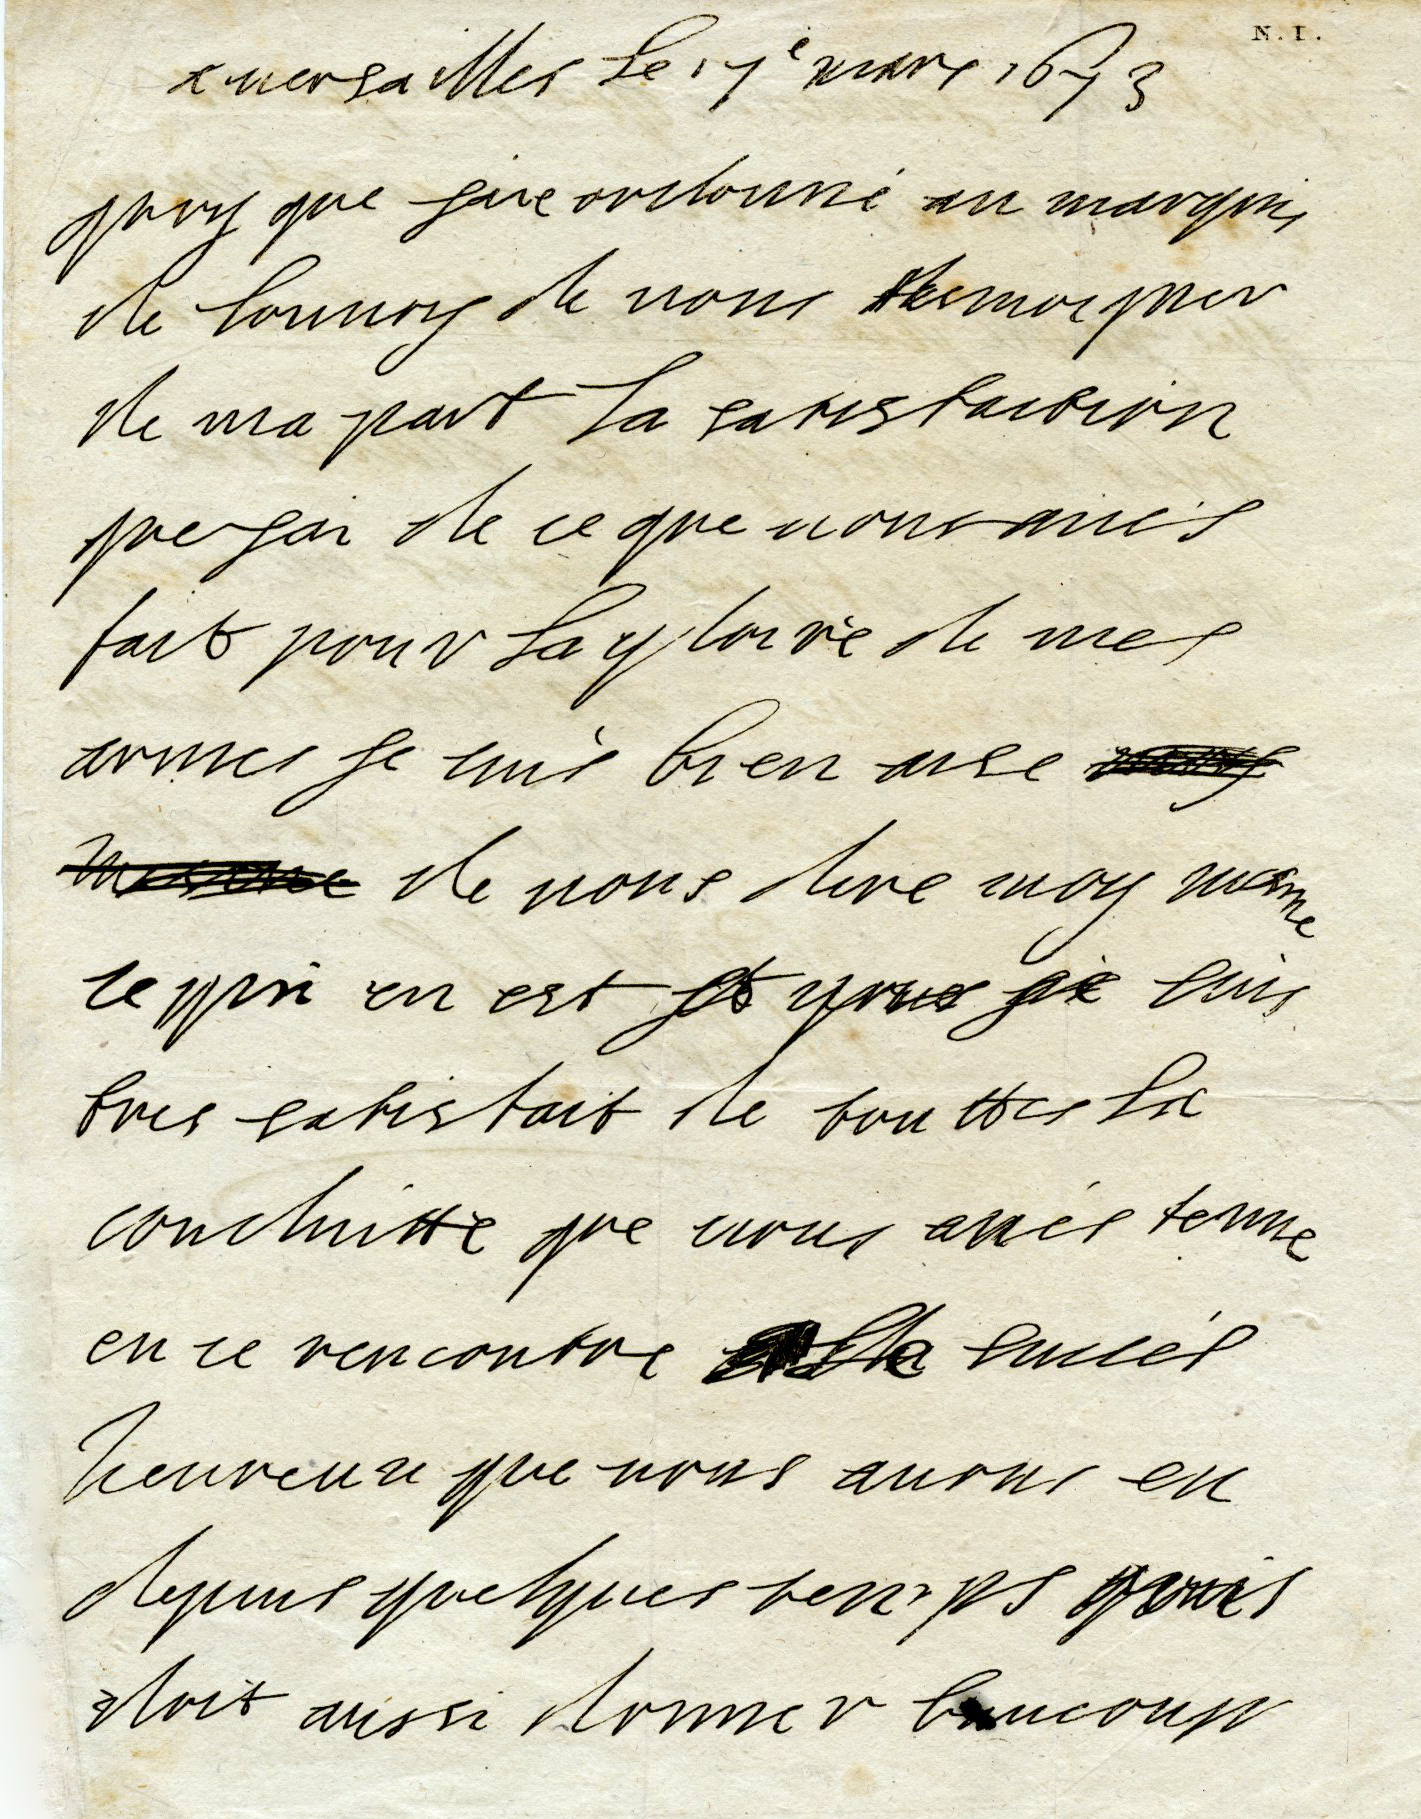 N. I.
a uersailles Le 17e mars 1673
quoy que jaie ordonné au marquis
de louuoy de uous tesmoigner
de ma part La satisfaction
que jai de ce que uous aués
fait pour La gloire de mes
armes je suis bien aise
de uous dire moy mesme
ce qui en est et que je suis
tres satisfait de touttes La
conduitte que uous aués tenue
en ce rencontre le succés
heureux que nous auons eu
depuis quelques temps
doit aussi donner beaucoup